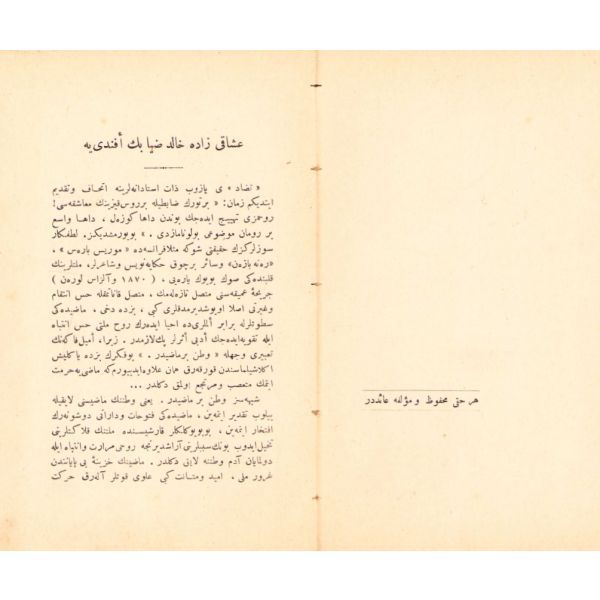 هر حق محفوظ و مؤلفه عائددر
عشاقی زاده خالد ضیا بك أفندی یه
« تضاد » ی یازوب ذات استادانه لرینه اتحاف و تقدیم
ایتدیكم زمان: « بر تورك ضابطیله بر روس قیزینك معاشقه سی!
روحمزی تهییج ایده جك بوندن داها كوزه ل ، داها واسع
بر رومان موضوعی بولونامازدی . » بویورمشدیكز. لطفكار
سوزلركزك حقیقتی شوكه مثلا فرانسه ده « موریس باره س » ،
« ره نه بازه ن » وسائر برچوق حكایه نویس وشاعرلر، ملتلرینك
قلبنده كی صوك بویوك یاره یی ، ( ١٨٧٠ والزاس لورهن )
جریحۀ عمیقه سنی متصل تازه له مك ، متصل قاناتمقله حس انتقام
وغیرتی اصلا اویوشدیرمدقلری كبی ، بزده دخی . ماضیده كی
سطوتلرله برابر ألملری ده احیا ایده رك روح ملتی حس انتباه
ایله تقویه ایده جك أدبی أثرلر پك لازمدر . زیرا، أمیل فاگه نك
تعبیری وجهله « وطن بر ماضیدر . » بوفكرك بزده یاكلیش
اكلاشیلماسندن قورقه رق همان علاوه ایدییورم كه ماضی یه حرمت
ایتمك متعصب ومرتجع اولمق دكلدر ...
شبهه سز وطن بر ماضیدر . یعنی وطننك ماضیسنی لایقیله
بیلوب تقدیر ایتمه ین ، ماضیده كی فتوحات وداراتی دوشونه رك
افتخار ایتمه ین ، بویویوكلكلر قارشیسنده ملتنك فلاكتلرینی
تخیل ایدوب بونك سببلرینی آراشدیرنجه روحی مرارت وانتباه ایله
دولمایان آدم وطننه لایق دكلدر . ماضینك خزینۀ بی پایانندن
غرور ملی ، امید ومتانت كبی علوی قوتلر آله رق حركت